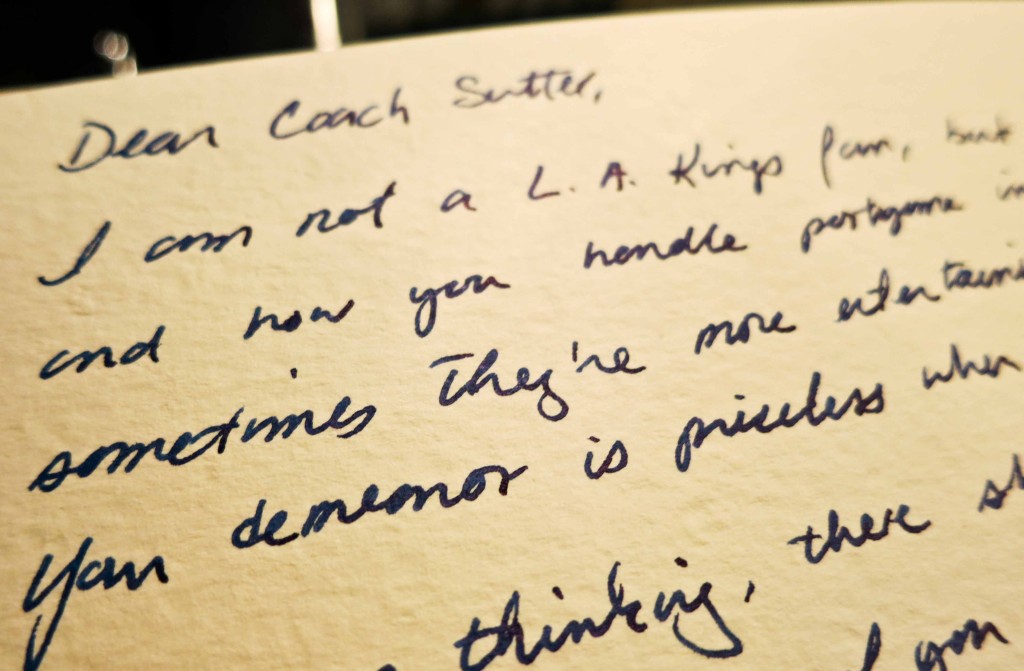 Dear Coach Sutter,
I am not a L.A. Kings fan, but
and how you handle postgame in
sometimes they're more entertaini
Your demeanor is priceless when
thinking, there s
you